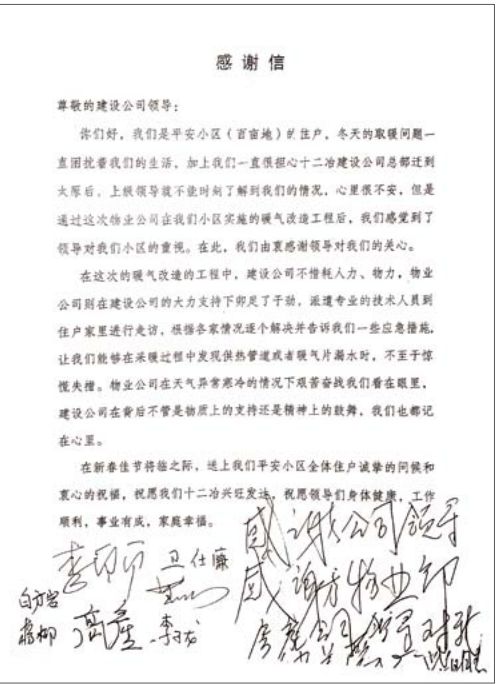 感谢信
尊敬的建设公司领导：
你们好，我们是平安小区（百亩地）的住户，冬天的取暖问题一
直困扰着我们的生活，加上我们一直很担心十二冶建设公司总部迁到
太原后，上级领导就不能时刻了解到我们的情况，心里很不安，但是
通过这次物业公司在我们小区实施的暖气改造工程后，我们感觉到了
领导对我们小区的重视。在此，我们由衷感谢领导对我们的关心。
在这次的暖气改造的工程中，建设公司不惜耗人力、物力，物业
公司则在建设公司的大力支持下卯足了干劲，派遣专业的技术人员到
住户家里进行走访，根据各家情况逐个解决并告诉我们一些应急措施，
让我们能够在采暖过程中发现供热管道或者暖气片漏水时，不至于惊
慌失措。物业公司在天气异常寒冷的情况下艰苦奋战我们看在眼里，
建设公司在背后不管是物质上的支持还是精神上的鼓舞，我们也都记
在心里。
在新春佳节将临之际，送上我们平安小区全体住户诚挚的问候和
衷心的祝福，祝愿我们十二冶兴旺发达，祝愿领导们身体健康，工作
顺利，事业有成，家庭幸福。
感谢公司领导
卫仕廉
感谢物业